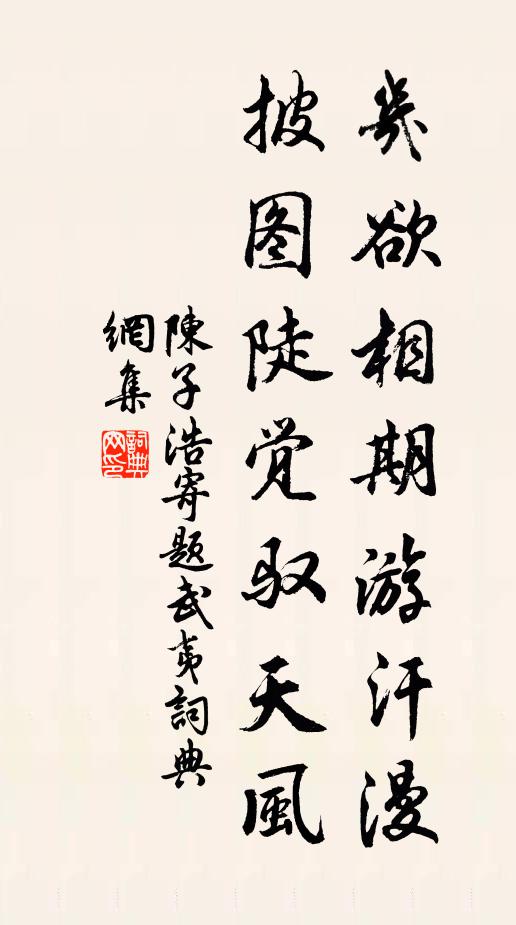 幾欲相期游汗漫
披图陡觉驭天風
陳子浩寄題武夷詞典
網集
詞典网印